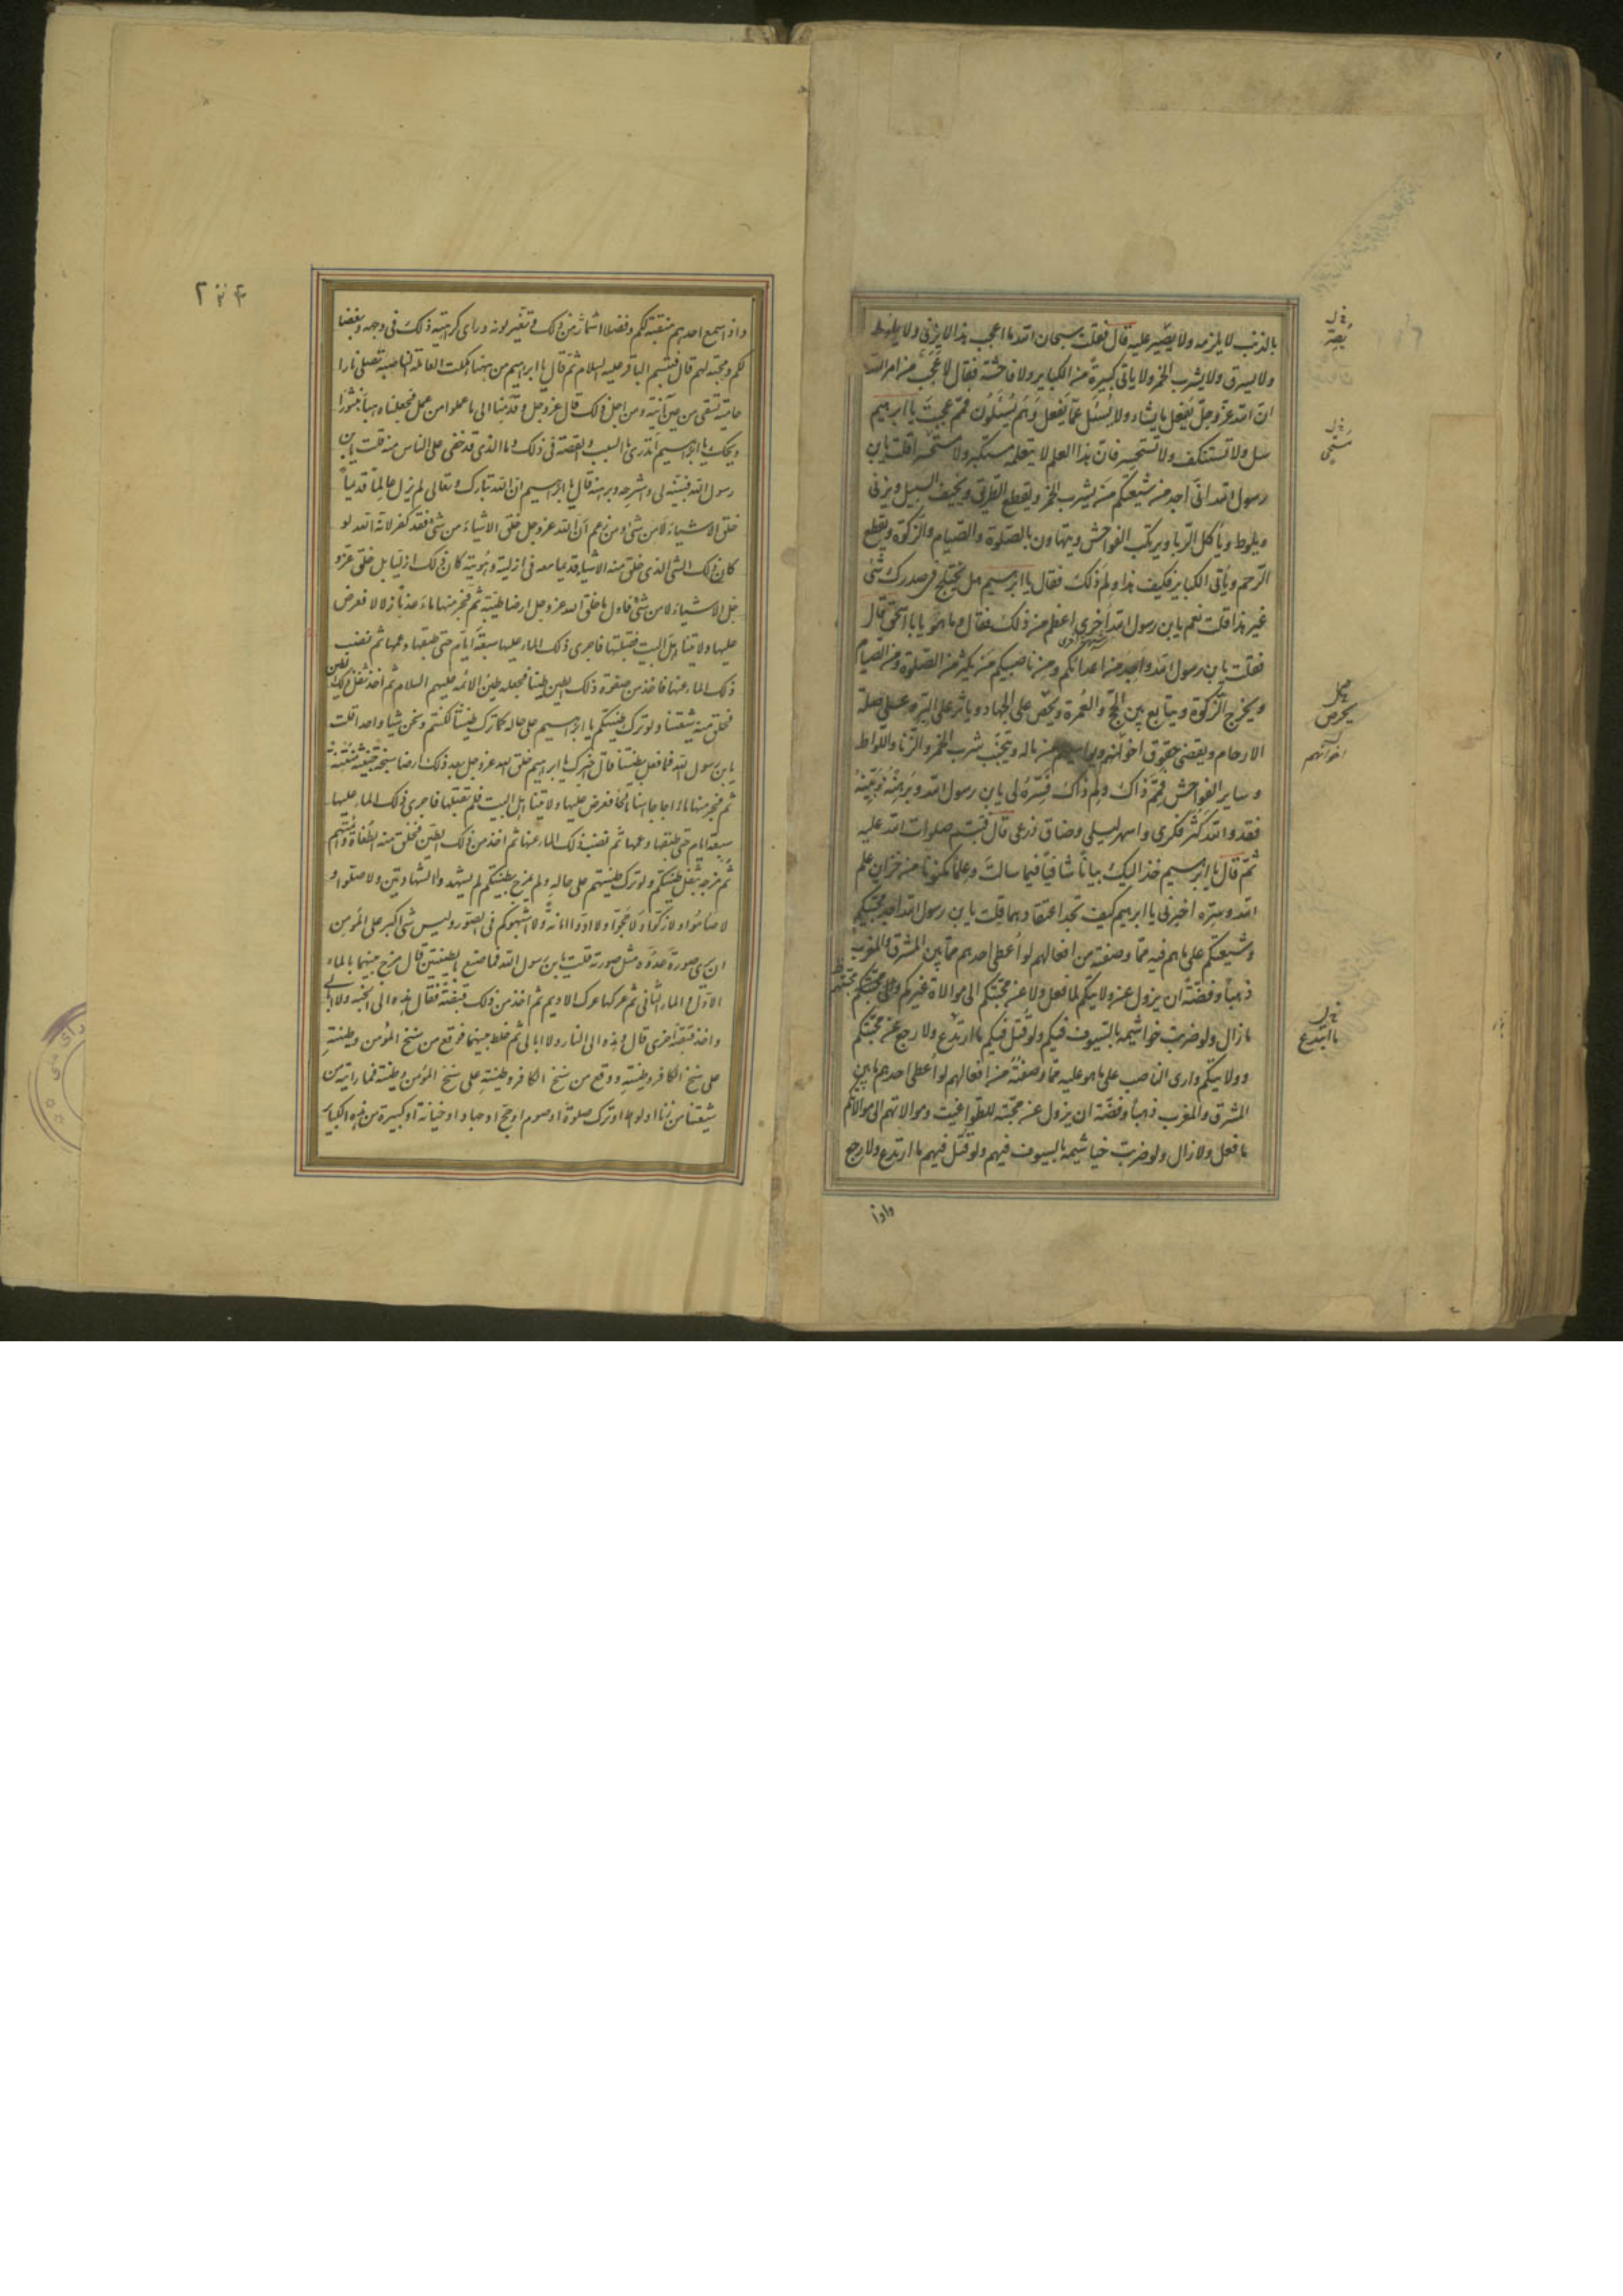 بالذنب لا يلزمه ولا يصير عليه قال فقلت سبحان الله ما اعجب هذا لا يزنى ولا يلوط
ولا يسرق ولا يشرب الخمر ولا ياتى كبيرة من الكباير ولا فاحشة فقال لا عجب من امر الله
ان الله عز وجل يفعل ما يشاء ولا يسئل عما يفعل وهم يسئلون فمم عجبت يا ابراهيم
سل ولا تستنكف ولا تستحسر فان هذا العلم لا يتعلمه مستكبر ولا مستحسر قلت يابن
رسول الله انى اجد من شيعتكم من يشرب الخمر ويقطع الطريق ويخيف السبيل ويزنى
ويلوط وياكل الربا ويرتكب الفواحش ويتهاون بالصلوة والصيام والزكوة ويقطع
الرحم وياتى الكباير فكيف هذا ولم ذلك فقال يا ابراهيم هل يختلج فى صدرك شئ
غير هذا قلت نعم يابن رسول الله اخرى اعظم من ذلك فقال وما هو يا ابا اسحق قال
فقلت يابن رسول الله واجد من اعدائكم ومن ناصبيكم من يكثر من الصلوة ومن الصيام
ويخرج الزكوة ويتابع بين الحج والعمرة ويحض على الجهاد وياثر على البر وعلى صلة
الارحام ويقضى حقوق اخوانه ويواسيهم من ماله ويتجنب شرب الخمر والزنا واللواط
وساير الفواحش فمم ذاك ولم ذاك فسره لى يابن رسول الله وبرهنه وبينه
فقد والله كثر فكرى واسهر ليلى وضاق ذرعى قال فتبسم صلوات الله عليه
ثم قال يا ابراهيم خذ اليك بيانا شافيا فيما سالت وعلما مكنونا من خزاين علم
الله وسره اخبرنى يا ابراهيم كيف تجد اعتقادهما قلت يابن رسول الله اجد محبيكم
وشيعتكم على ما هم فيه مما وصفته من افعالهم لو اعطى احدهم مما بين المشرق والمغرب
ذهبا وفضة ان يزول عن ولايتكم لما فعل ولا عن محبتكم الى موالاة غيركم والى محبتهم
ما زال ولو ضربت خواشيمه بالسيوف فيكم ولو قتل فيكم ما ارتدع ولا رجع عن محبتكم
وولايتكم وارى الناصب على ما هو عليه مما وصفته من افعالهم لو اعطى احدهم ما بين
المشرق والمغرب ذهبا وفضة ان يزول عن محبته للطواغيت وموالاتهم الى موالاتكم
ما فعل ولا زال ولو ضربت خياشيمه بالسيوف فيهم ولو قتل فيهم ما ارتدع ولا رجع
واذا
واذا سمع احدهم منقبة لكم وفضلا اشمأز من ذلك وتغير لونه ورأى كراهية ذلك فى وجهه وبغضا
لكم ومحبة لهم قال فتبسم الباقر عليه السلام ثم قال يا ابراهيم من ههنا هلكت العاملة الناصبة تصلى نارا
حامية تسقى من عين آنية ومن اجل ذلك قال عز وجل وقدمنا الى ما عملوا من عمل فجعلناه هباء منثورا
ويحك يا ابراهيم أتدرى ما السبب والقصة فى ذلك وما الذى قد خفى على الناس منه قلت يابن
رسول الله فبينه لى واشرحه وبرهنه قال يا ابراهيم ان الله تبارك وتعالى لم يزل عالما قديما
خلق الاشياء لا من شئ ومن زعم ان الله عز وجل خلق الاشياء من شئ فقد كفر لانه الله لو
كان ذلك الشئ الذى خلق منه الاشياء قديما معه فى ازليته وهويته كان ذلك ازليا بل خلق عز و
جل الاشياء لا من شئ فاول ما خلق الله عز وجل ارضا طيبة ثم فجر منها ماء عذبا زلالا فعرض
عليها ولايتنا اهل البيت فقبلتها فاجرى ذلك الماء عليها سبعة ايام حتى طبقها وعمها ثم نضب
ذلك الماء عنها فاخذ من صفوة ذلك الطين طينا فجعله طين الائمه عليهم السلام ثم اخذ ثفل ذلك الطين
فخلق منه شيعتنا ولو ترك طينتكم يا ابراهيم على حاله كما ترك طينتنا لكنتم ونحن شيئا واحدا قلت
يابن رسول الله فما فعل بطينتنا قال اخبرك يا ابراهيم خلق الله عز وجل بعد ذلك ارضا سبخة خبيثة منتنة
ثم فجر منها ماء اجاجا اسنا مالحا فعرض عليها ولايتنا اهل البيت فلم تقبلها فاجرى ذلك الماء عليها
سبعة ايام حتى طبقها وعمها ثم نضب ذلك الماء عنها ثم اخذ من ذلك الطين فخلق منه الطغاة وائمتهم
ثم مزجه بثفل طينتكم ولو ترك طينتهم على حاله ولم يمزج بطينتكم لم يشهدوا الشهادتين ولا صلوا و
لا صاموا ولا زكوا ولا حجوا ولا ادوا امانة ولا اشبهوكم فى الصور وليس شئ اكبر على المؤمن
ان يرى صورة عدوه مثل صورته قلت يابن رسول الله فما صنع بالطينتين قال مزج بينهما بالماء
الاول والماء الثانى ثم عركها عرك الاديم ثم اخذ من ذلك قبضة فقال هذه الى الجنة ولا ابالى
واخذ قبضة اخرى قال وهذه الى النار ولا ابالى ثم خلط بينهما فوقع من سنخ المؤمن وطينته
على سنخ الكافر وطينته ووقع من سنخ الكافر وطينته على سنخ المؤمن وطينته فما رايته من
شيعتنا من زنا او لواط او ترك صلوة او صوم او حج او جهاد او خيانة او كبيرة من هذه الكباير